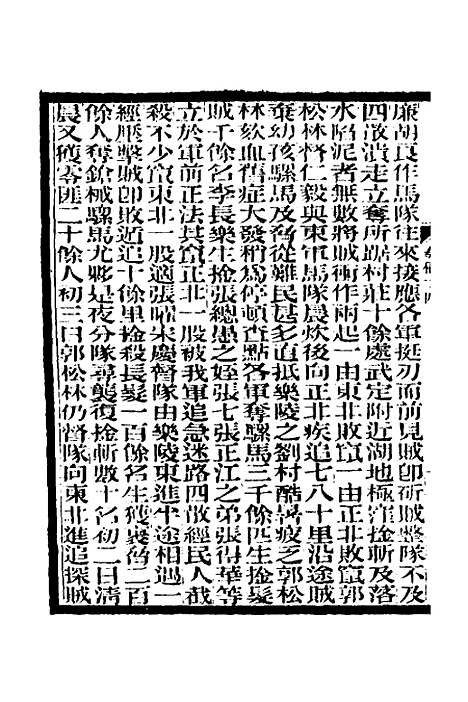 廉胡良作馬隊往來接應各軍挺刃而前見賊卽斫賊整隊不及
四散潰走立奪所踞村莊十餘處武定附近湖地極窪捡斬及落
水陷泥者無數將賊衝作兩起一由東北敗竄一由正北敗竄郭
松林督仁毅與東軍馬隊晨炊後向正北疾追七八十里沿途賊
棄幼孩騾馬及脅從難民甚多直抵樂陵之劉村酷暑疲乏郭松
林欬血舊症大發稍爲停頓查點各軍奪騾馬三千餘匹生捡髮
賊千餘名李長樂生捡張總愚之姪張七張正江之弟張得華等
立於軍前正法其竄正北一股被我軍追急迷路四散經民人截
殺不少竄東北一股適張曜宋慶督隊由樂陵東進半途相遇一
經壓擊賊卽敗遁追十餘里捡殺長髮一百餘名生獲裹脅二百
餘人奪鎗械騾馬尤夥是夜分隊尋襲復捡斬數十名初二日淸
晨又獲零匪二十餘人初三日郭松林仍督隊向東北進追探賊